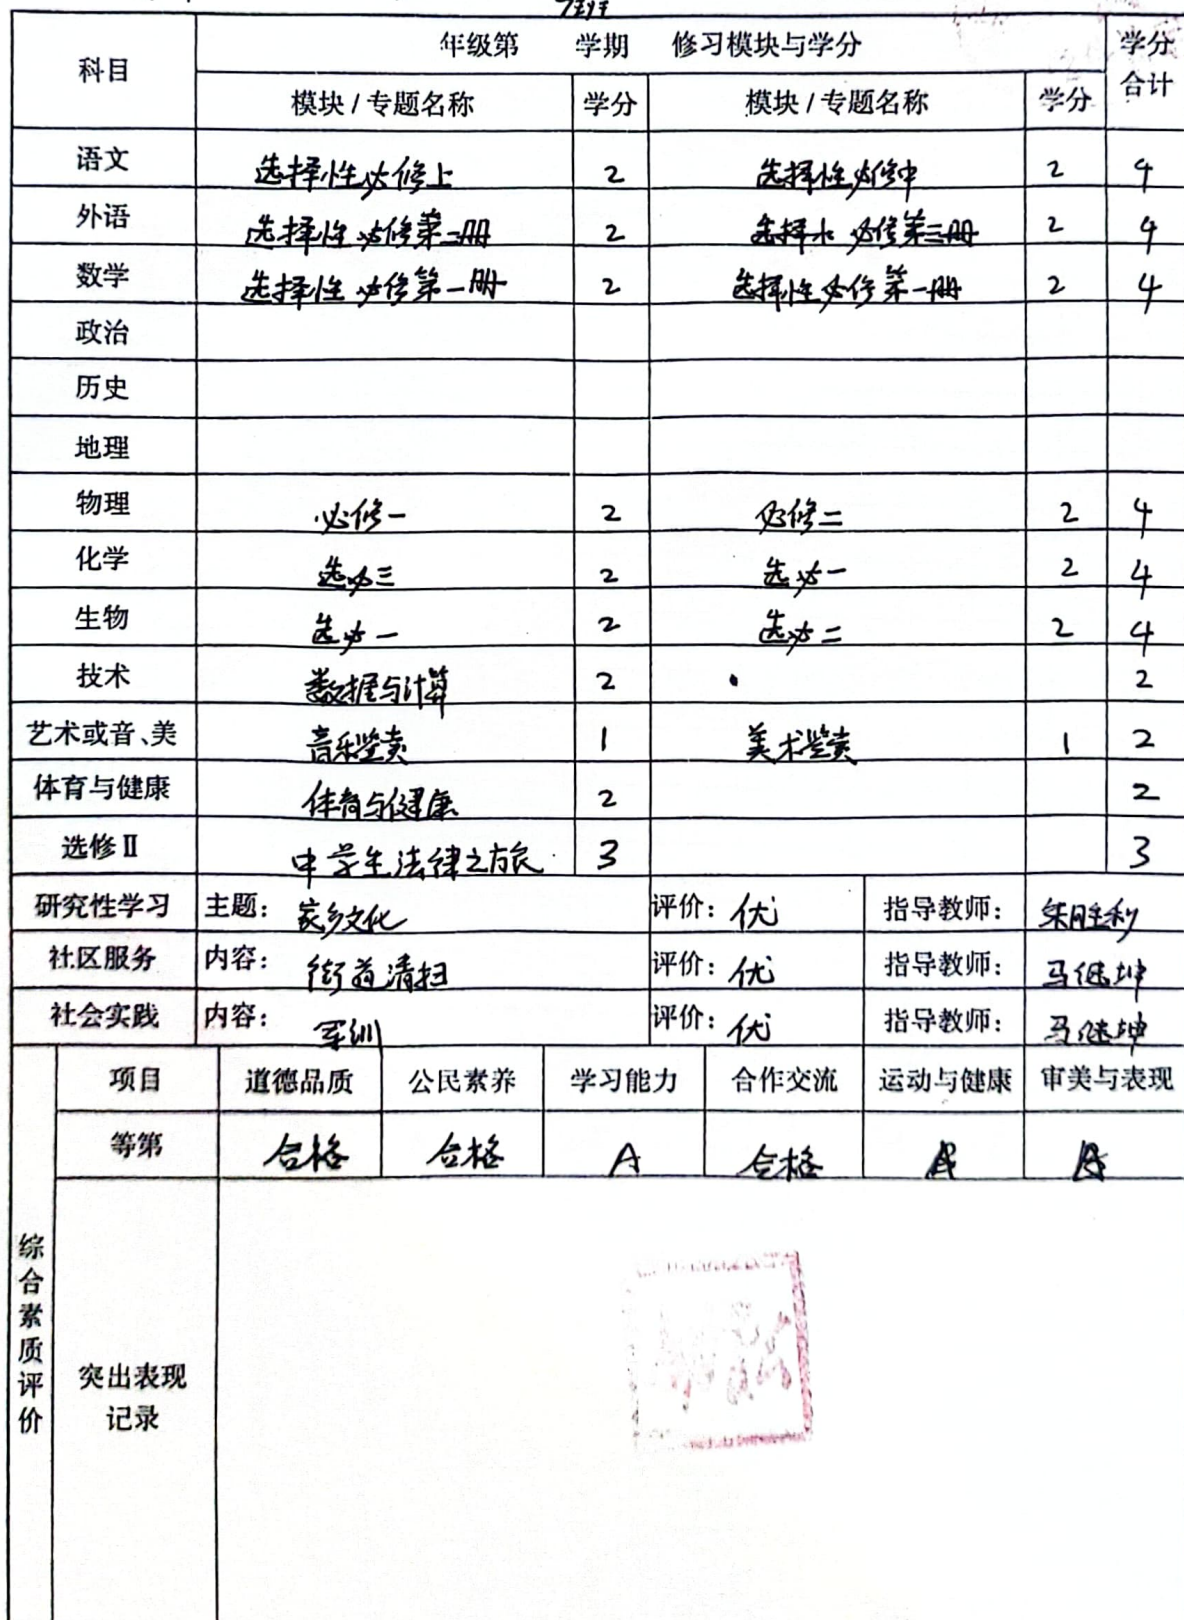 年级第 学期 修习模块与学分
科目 学分合计
模块/专题名称 学分 模块/专题名称 学分
语文 选择性必修上 2 选择性必修中 2 4
外语 选择性必修第二册 2 选择 必修第三册 2 4
数学 选择性必修第一册 2 选择性必修第一册 2 4
政治
历史
地理
物理 必修一 2 必修二 2 4
化学 选必三 2 选必一 2 4
生物 选必一 2 选必二 2 4
技术 数据与计算 2 2
艺术或音、美 音乐鉴赏 1 美术鉴赏 1 2
体育与健康 体育与健康 2 2
选修Ⅱ 中学生法律之旅 3 3
研究性学习 主题: 家乡文化 评价: 优 指导教师: 朱胜利
社区服务 内容: 街道清扫 评价: 优 指导教师: 马继坤
社会实践 内容: 军训 评价: 优 指导教师: 马继坤
项目 道德品质 公民素养 学习能力 合作交流 运动与健康 审美与表现
等第 合格 合格 A 合格
综合素质评价
突出表现
记录